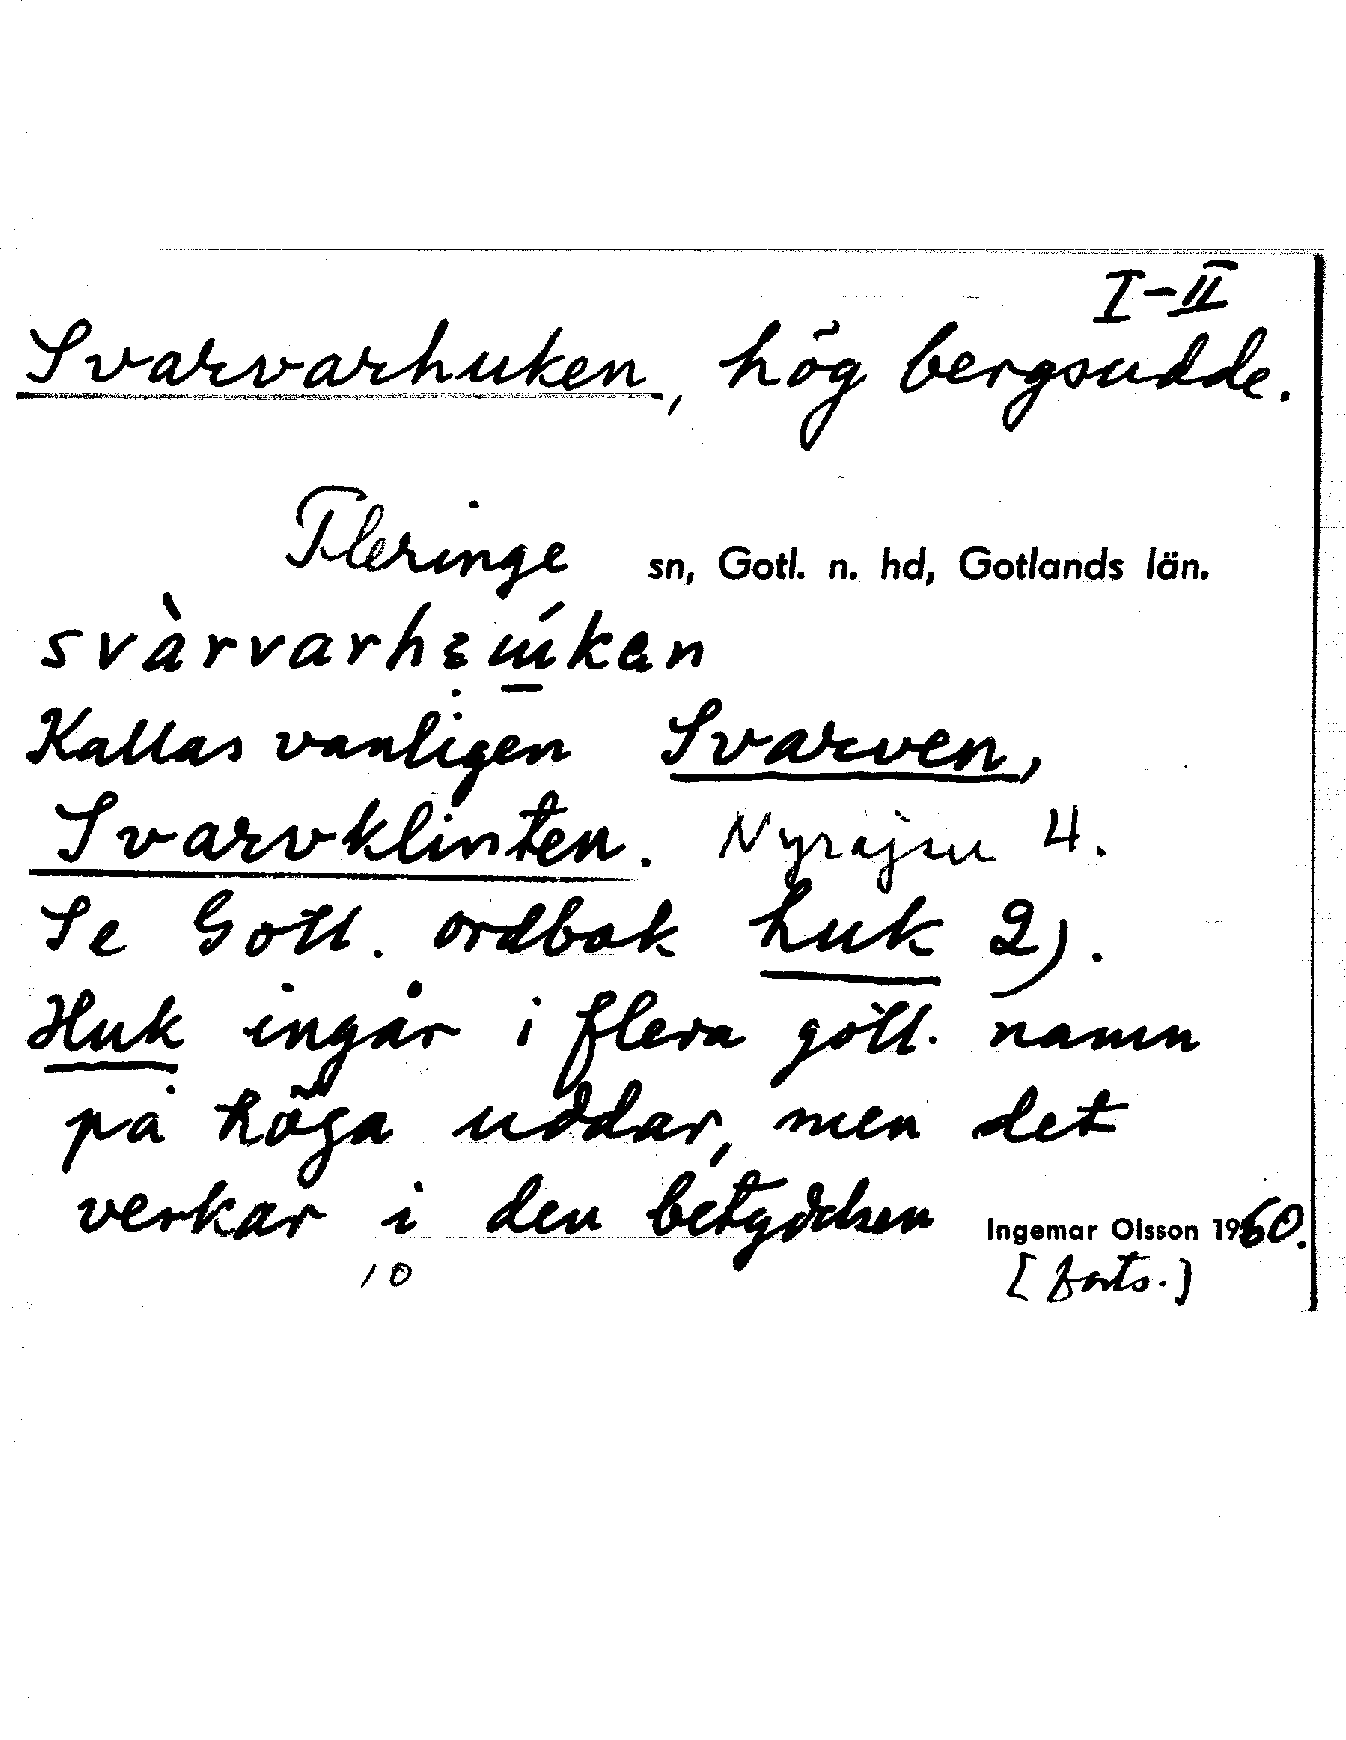 I-II
Svarvarhuken, hög bergsudde.
Fleringe sn, Gotl. n. hd, Gotlands län.
Kallas vanligen Svarven,
Svarvklinten. 4.
Se Gotl. ordbok huk 2).
Huk ingår i flera gotl. namn
på höga uddar, men det
verkar i den betydelsen
Ingemar Olsson 1960.
10 [forts.]